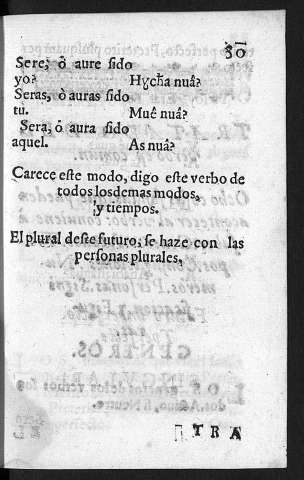 30
Sere, ò aure sido
yo? Hycħa nuâ?
Seras, ò auras sido
tu. Mué nuâ?
Sera, ó aura sido
aquel. As nuâ?
Carece este modo, digo este verbo de
todos losdemas modos,
y tiempos.
El plural deste futuro, se haze con las
personas plurales,
TRA